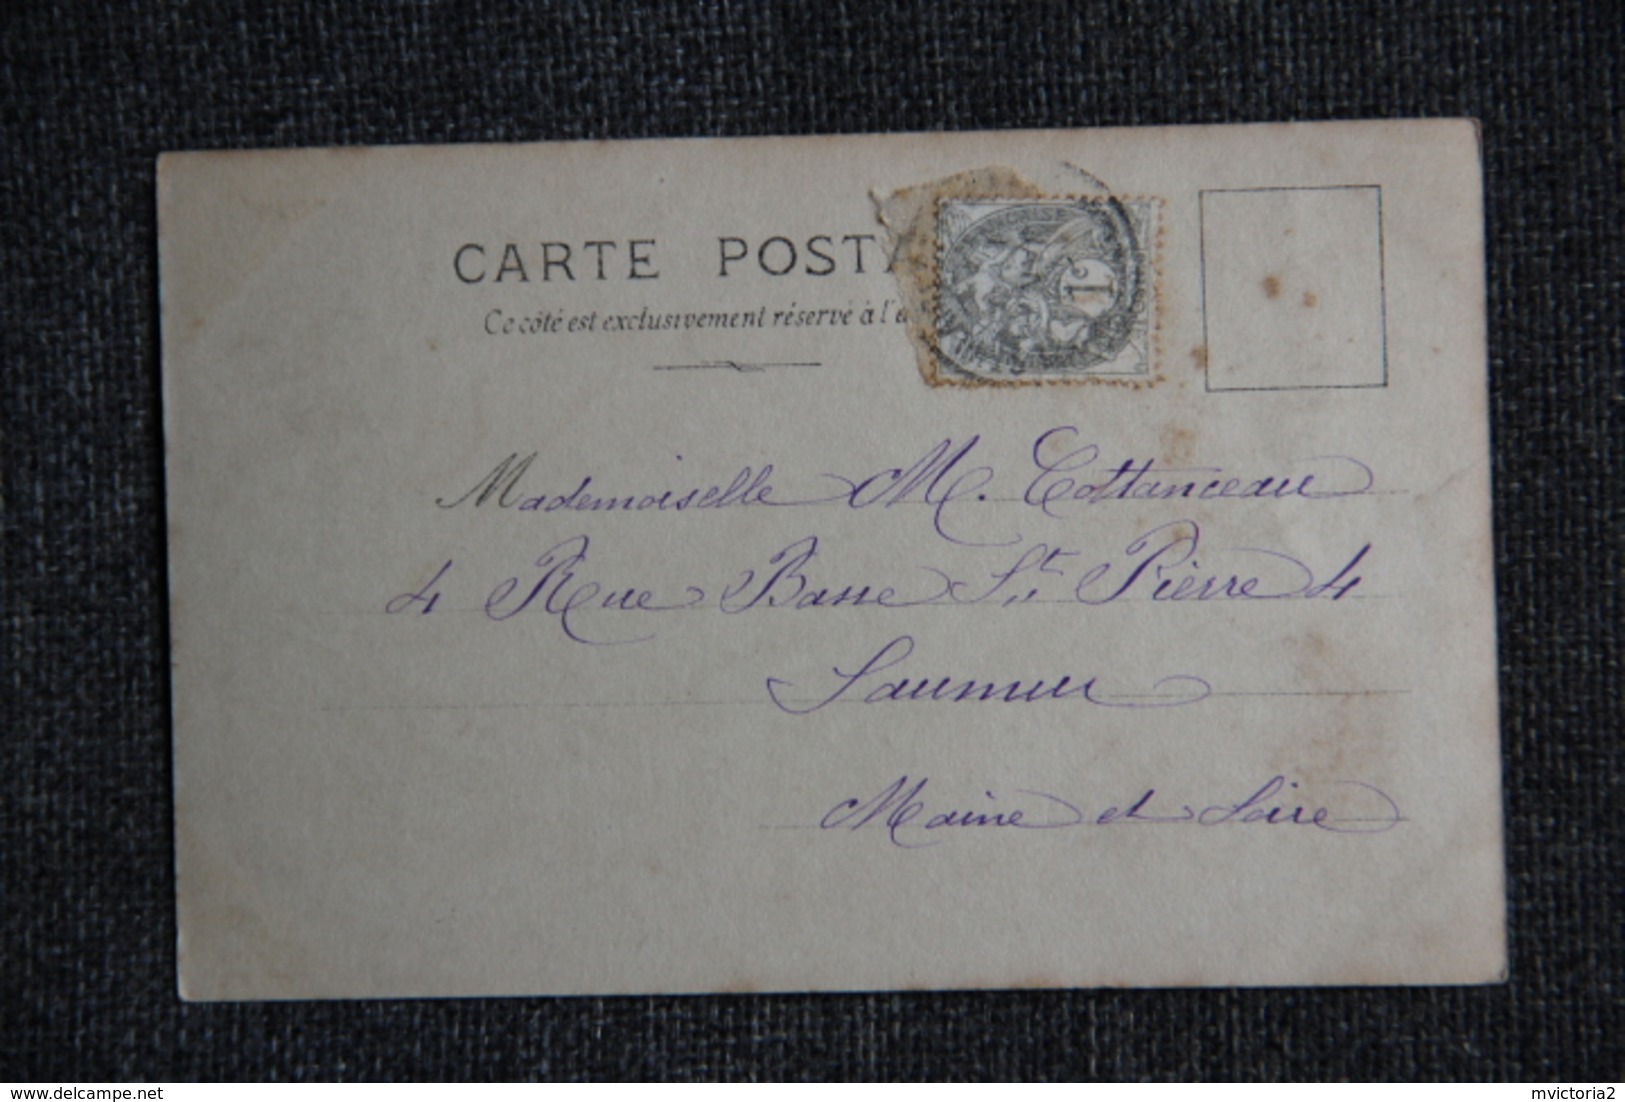 CARTE POSTA
Ce côté est exclusivement réservé à l'a
1c
Mademoiselle M. Cottanceau
4 Rue Basse St Pierre 4
Saumur
Maine et Loire
delcampe.net
mvictoria2